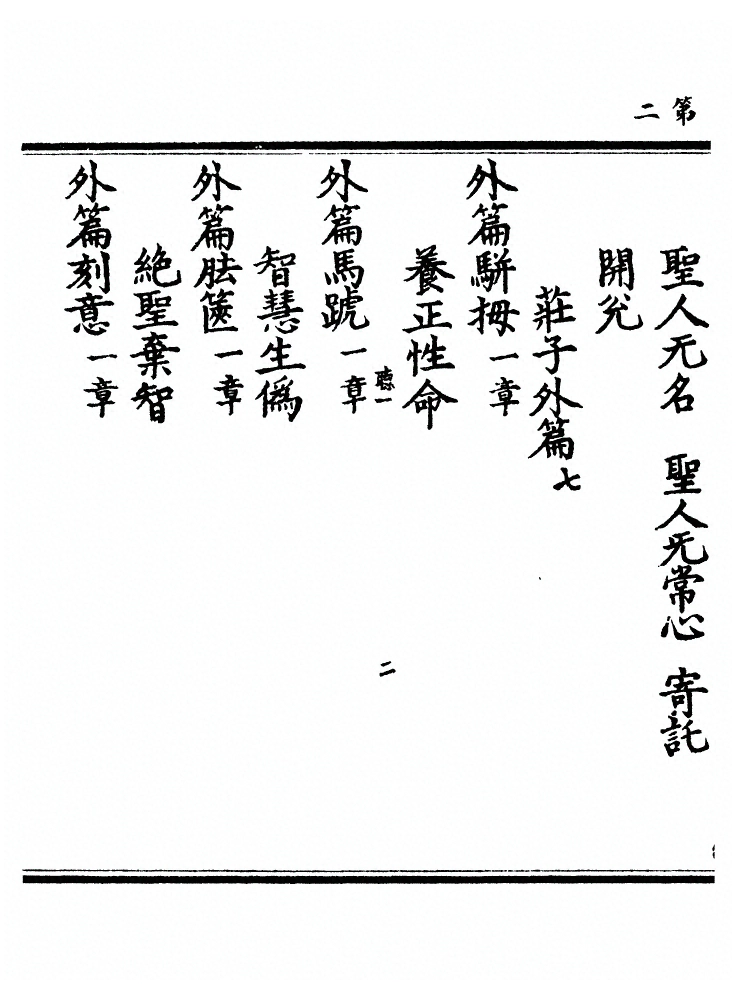 第二
聖人无名　聖人旡常心　寄託
開兊
莊子外篇七
外篇駢拇一章
養正性命
聽一
外篇馬蹏一章
二
智慧生僞
外篇胠篋一章
絶聖棄智
外篇刻意一章